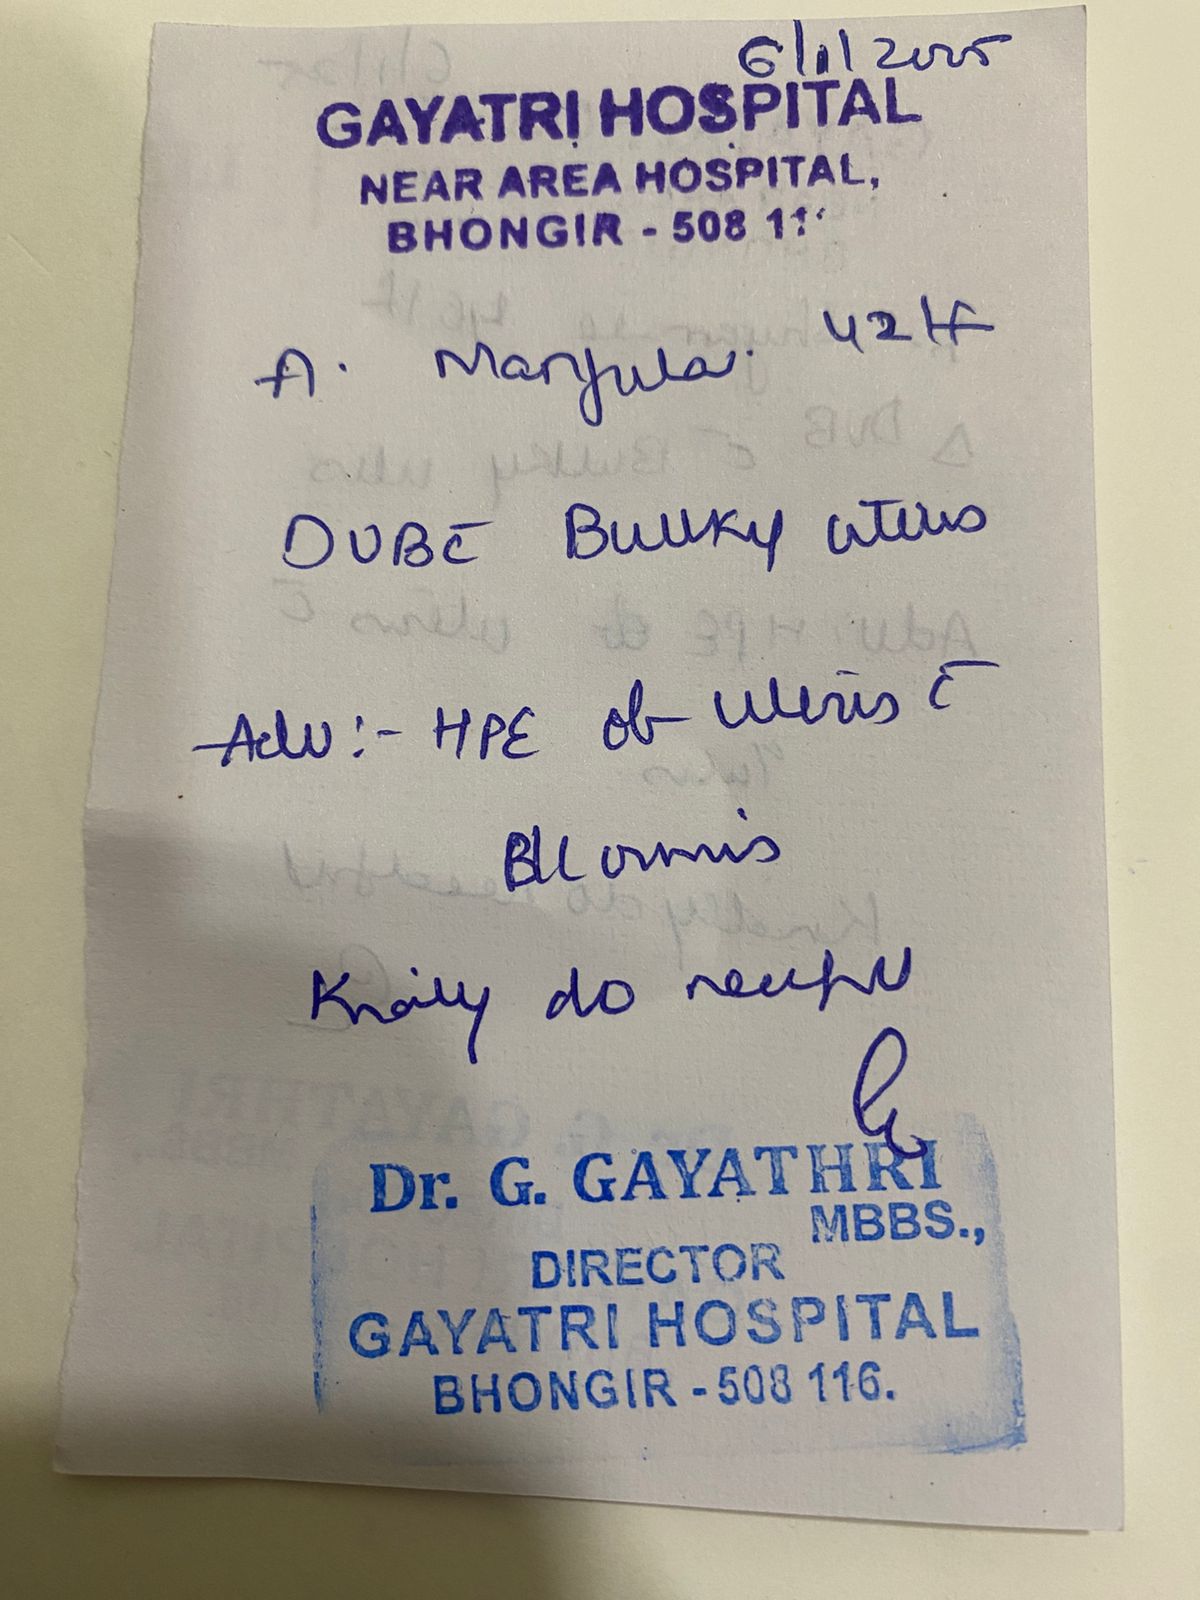 6/1/2025
GAYATRI HOSPITAL
NEAR AREA HOSPITAL,
BHONGIR - 508 11
A. Manjula. 42 F
DUB c̄ Bulky uterus
Adv :- HPE of uterus c̄
B/L ovaries
Kindly do needful
Dr. G. GAYATHRI
MBBS.,
DIRECTOR
GAYATRI HOSPITAL
BHONGIR - 508 116.